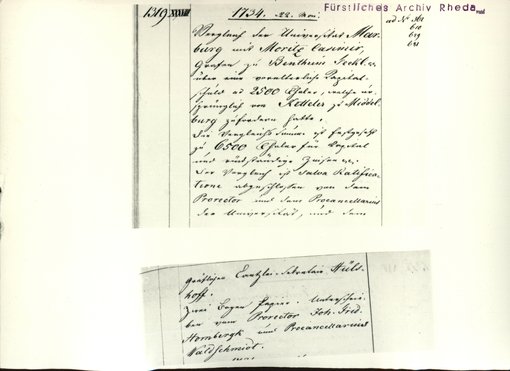 Fürstliches Archiv Rheda
1319 XXVIII 1734. 22. Mai. ad No 561
610
619
621
Vergleich der Universitaet Mar-
burg mit Moritz Casimir,
Grafen zu Bentheim Teckl. &
über eine voralterliche Capital-
schuld ad 2500 Thaler, welche ur-
sprünglich von Ketteler zu Middel-
burg zu fordern hatte.
Die Vergleichs Summe ist festgesetzt
zu 6500 Thaler für Capital
und rückständige Zinsen &c.
Der Vergleich ist salva Ratifica-
tione abgeschlossen von dem
Prorector und dem Procancellarius
der Universitaet, und dem
gräflichen Canzlei-Sekretair Hüls-
hoff.
Zwei Bogen Papier. Unterschrie-
ben vom Prorector Joh. Frid.
Hombergk und Procancellarius
Waldschmidt.